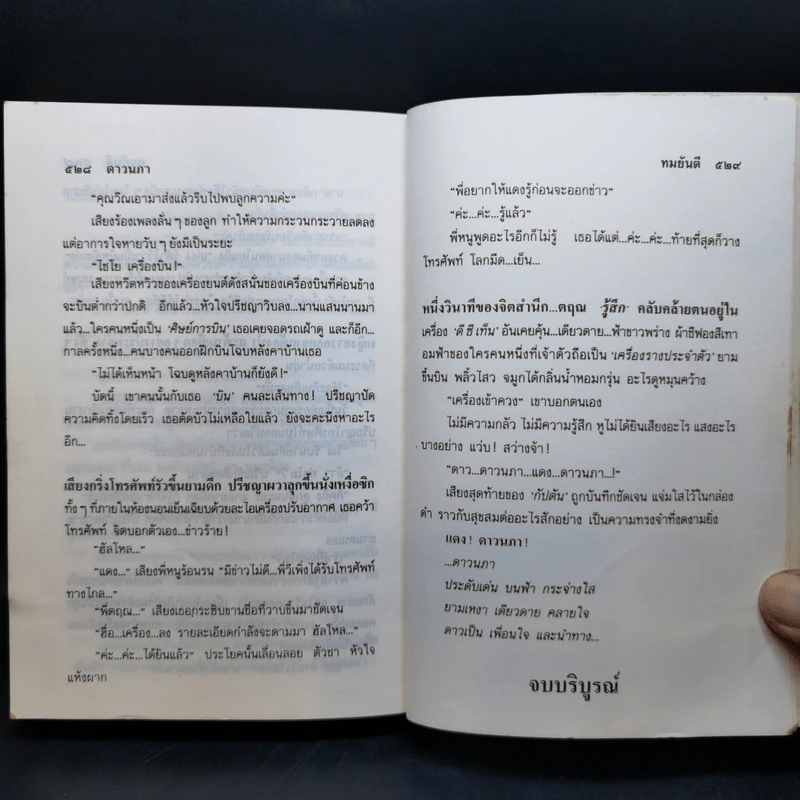 ๕๒๘ ดาวนภา
“คุณวีณเอามาส่งแล้วรีบไปพบลูกความค่ะ”
เสียงร้องเพลงลั่นๆ ของลูก ทำให้ความกระวนกระวายลดลง
แต่อาการใจหายวับๆ ยังมีเป็นระยะ
“ไชโย เครื่องบิน!”
เสียงหวีดหวิวของเครื่องยนต์ดังสนั่นของเครื่องบินที่ค่อนข้าง
จะบินต่ำกว่าปกติ อีกแล้ว...หัวใจปรัชญาวิบลง...นานแสนนานมา
แล้ว...ใครคนหนึ่งเป็น ‘ศิษย์การบิน’ เธอเคยจอดรถเฝ้าดู และก็อีก...
กาลครั้งหนึ่ง...คนบางคนออกฝึกบินโฉบหลังคาบ้านเธอ
“ไม่ได้เห็นหน้า โฉบดูหลังคาบ้านก็ยังดี!”
บัดนี้ เขาคนนั้นกับเธอ ‘บิน’ คนละเส้นทาง! ปรัชญาปัด
ความคิดทิ้งโดยเร็ว เธอตัดบัวไม่เหลือใยแล้ว ยังจะคะนึงหาอะไร
อีก...
เสียงกริ่งโทรศัพท์รัวขึ้นยามดึก ปรัชญาผวาลุกขึ้นนั่งเหงื่อซิก
ทั้งๆ ที่ภายในห้องนอนเย็นเฉียบด้วยละไอเครื่องปรับอากาศ เธอคว้า
โทรศัพท์ จิตบอกตัวเอง...ข่าวร้าย!
“ฮัลโหล...”
“แดง...” เสียงพี่หนูร้อนรน “มีข่าวไม่ดี...พี่วีเพิ่งได้รับโทรศัพท์
ทางไกล...”
“พี่ตฤณ...” เสียงเธอกระซิบขานชื่อที่วาบขึ้นมาชัดเจน
“ฮื่อ...เครื่อง...ลง รายละเอียดกำลังจะตามมา ฮัลโหล...”
“ค่ะ...ค่ะ...ได้ยินแล้ว” ประโยคนั้นเลื่อนลอย ตัวชา หัวใจ
แห้งผาก
ทมยันตี ๕๒๙
“พี่อยากให้แดงรู้ก่อนจะออกข่าว”
“ค่ะ...ค่ะ...รู้แล้ว”
พี่หนูพูดอะไรอีกก็ไม่รู้ เธอได้แต่...ค่ะ...ค่ะ...ท้ายที่สุดก็วาง
โทรศัพท์ โลกมืด...เย็น...
หนึ่งวินาทีของจิตสำนึก...ตฤณ ‘รู้สึก’ คลับคล้ายตนอยู่ใน
เครื่อง ‘ดี ซี เท็น’ อันเคยคุ้น...เดียวดาย...ฟ้าขาวพร่าง ผ้าชีฟองสีเทา
อมฟ้าของใครคนหนึ่งที่เจ้าตัวถือเป็น ‘เครื่องรางประจำตัว’ ยาม
ขึ้นบิน พลิ้วไสว จมูกได้กลิ่นน้ำหอมกรุ่น อะไรดูหมุนคว้าง
“เครื่องเข้าควง” เขาบอกตนเอง
ไม่มีความกลัว ไม่มีความรู้สึก หูไม่ได้ยินเสียงอะไร แสงอะไร
บางอย่าง แว่บ! สว่างจ้า!
“ดาว...ดาวนภา...แดง...ดาวนภา...!”
เสียงสุดท้ายของ ‘กัปตัน’ ถูกบันทึกชัดเจน แจ่มใสไว้ในกล่อง
ดำ ราวกับสุขสมต่ออะไรสักอย่าง เป็นความทรงจำที่งดงามยิ่ง
แดง! ดาวนภา!
...ดาวนภา
ประดับเด่น บนฟ้า กระจ่างใส
ยามเหงา เดียวดาย คลายใจ
ดาวเป็น เพื่อนใจ และนำทาง...
จบบริบูรณ์